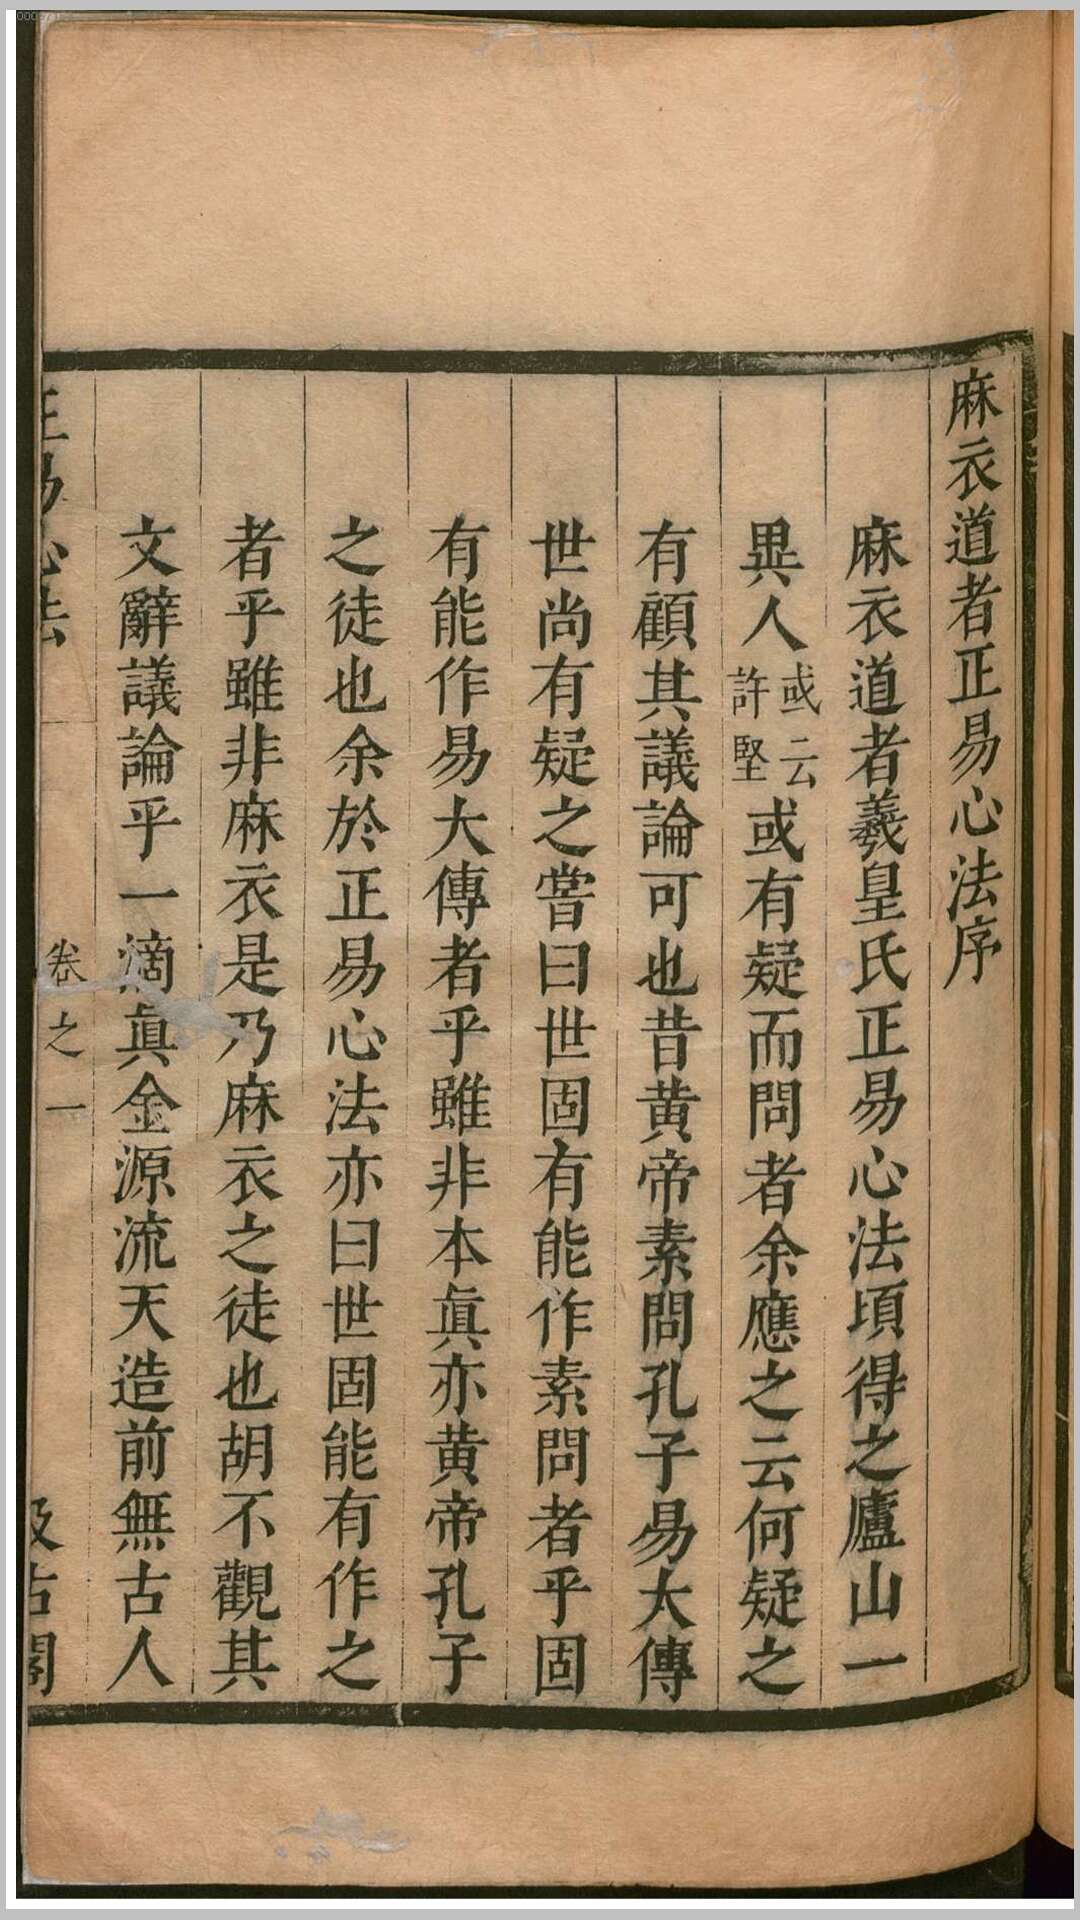 麻衣道者正易心法序
麻衣道者羲皇氏正易心法頃得之廬山一
異人或云許堅或有疑而問者余應之云何疑之
有顧其議論可也昔黄帝素問孔子易大傳
世尚有疑之嘗曰世固有能作素問者乎固
有能作易大傳者乎雖非本眞亦黄帝孔子
之徒也余於正易心法亦曰世固能有作之
者乎雖非麻衣是乃麻衣之徒也胡不觀其
文辭議論乎一滴眞金源流天造前無古人
正易心法 卷之一 汲古閣